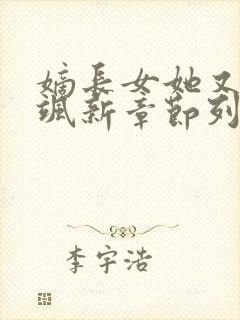 嫡长女她又
飒新章节列
李宇浩